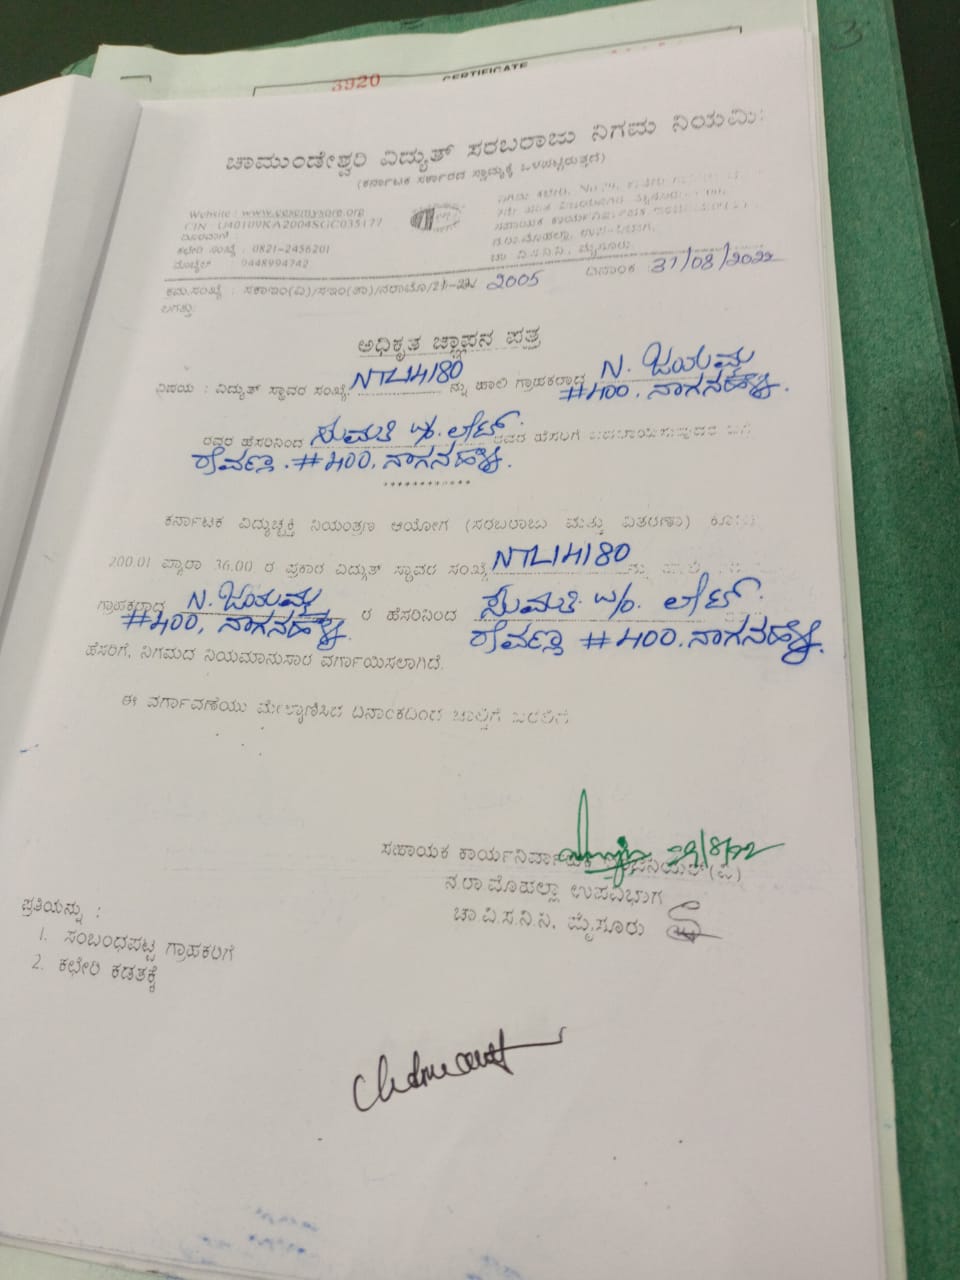 3
3920
CERTIFICATE
ಚಾಮುಂಡೇಶ್ವರಿ ವಿದ್ಯುತ್ ಸರಬರಾಜು ನಿಗಮ
(ಕರ್ನಾಟಕ ಸರ್ಕಾರದ ಸ್ವಾಮ್ಯಕ್ಕೆ ಒಳಪಟ್ಟಿರುತ್ತದೆ)
Website :
CIN : U40109KA2004SGC035177
ದೂರವಾಣಿ
ಕಛೇರಿ ಸಂಖ್ಯೆ : 0821-2456201
ಮೊಬೈಲ್ : 9448994742
ನ.ರಾ.ಮೊಹಲ್ಲಾ, ಉಪ-ವಿಭಾಗ,
ಚಾ.ವಿ.ಸ.ನಿ.ನಿ, ಮೈಸೂರು
ಕ್ರಮ.ಸಂಖ್ಯೆ : 2005 ದಿನಾಂಕ 31/08/2022
ಲಗತ್ತು:
ಅಧಿಕೃತ ಜ್ಞಾಪನ ಪತ್ರ
ವಿಷಯ : ವಿದ್ಯುತ್ ಸ್ಥಾವರ ಸಂಖ್ಯೆ NTL14180 ನ್ನು ಹಾಲಿ ಗ್ರಾಹಕರಾದ N. ಜಯಮ್ಮ
#400, ನಾಗನಹಳ್ಳಿ.
ರವರ ಹೆಸರಿನಿಂದ ಸುಮತಿ w/o. ಲೇಟ್. ರವರ ಹೆಸರಿಗೆ
ರೇವಣ್ಣ. #400, ನಾಗನಹಳ್ಳಿ.
************
ಕರ್ನಾಟಕ ವಿದ್ಯುಚ್ಛಕ್ತಿ ನಿಯಂತ್ರಣ ಆಯೋಗ (ಸರಬರಾಜು ಮತ್ತು ವಿತರಣಾ)
200.01 ಪ್ಯಾರಾ 36.00 ರ ಪ್ರಕಾರ ವಿದ್ಯುತ್ ಸ್ಥಾವರ ಸಂಖ್ಯೆ NTL14180 ನ್ನು
ಗ್ರಾಹಕರಾದ N. ಜಯಮ್ಮ ರ ಹೆಸರಿನಿಂದ ಸುಮತಿ w/o. ಲೇಟ್.
#400, ನಾಗನಹಳ್ಳಿ. ರೇವಣ್ಣ #400, ನಾಗನಹಳ್ಳಿ.
ಹೆಸರಿಗೆ, ನಿಗಮದ ನಿಯಮಾನುಸಾರ ವರ್ಗಾಯಿಸಲಾಗಿದೆ.
ಈ ವರ್ಗಾವಣೆಯು ಮೇಲ್ಕಾಣಿಸಿದ ದಿನಾಂಕದಿಂದ ಜಾರಿಗೆ ಬರಲಿದೆ
29/8/22
ಸಹಾಯಕ ಕಾರ್ಯನಿರ್ವಾಹಕ
ನ.ರಾ.ಮೊಹಲ್ಲಾ ಉಪವಿಭಾಗ
ಚಾ.ವಿ.ಸ.ನಿ.ನಿ, ಮೈಸೂರು
ಪ್ರತಿಯನ್ನು :
1. ಸಂಬಂಧಪಟ್ಟ ಗ್ರಾಹಕರಿಗೆ
2. ಕಛೇರಿ ಕಡತಕ್ಕೆ